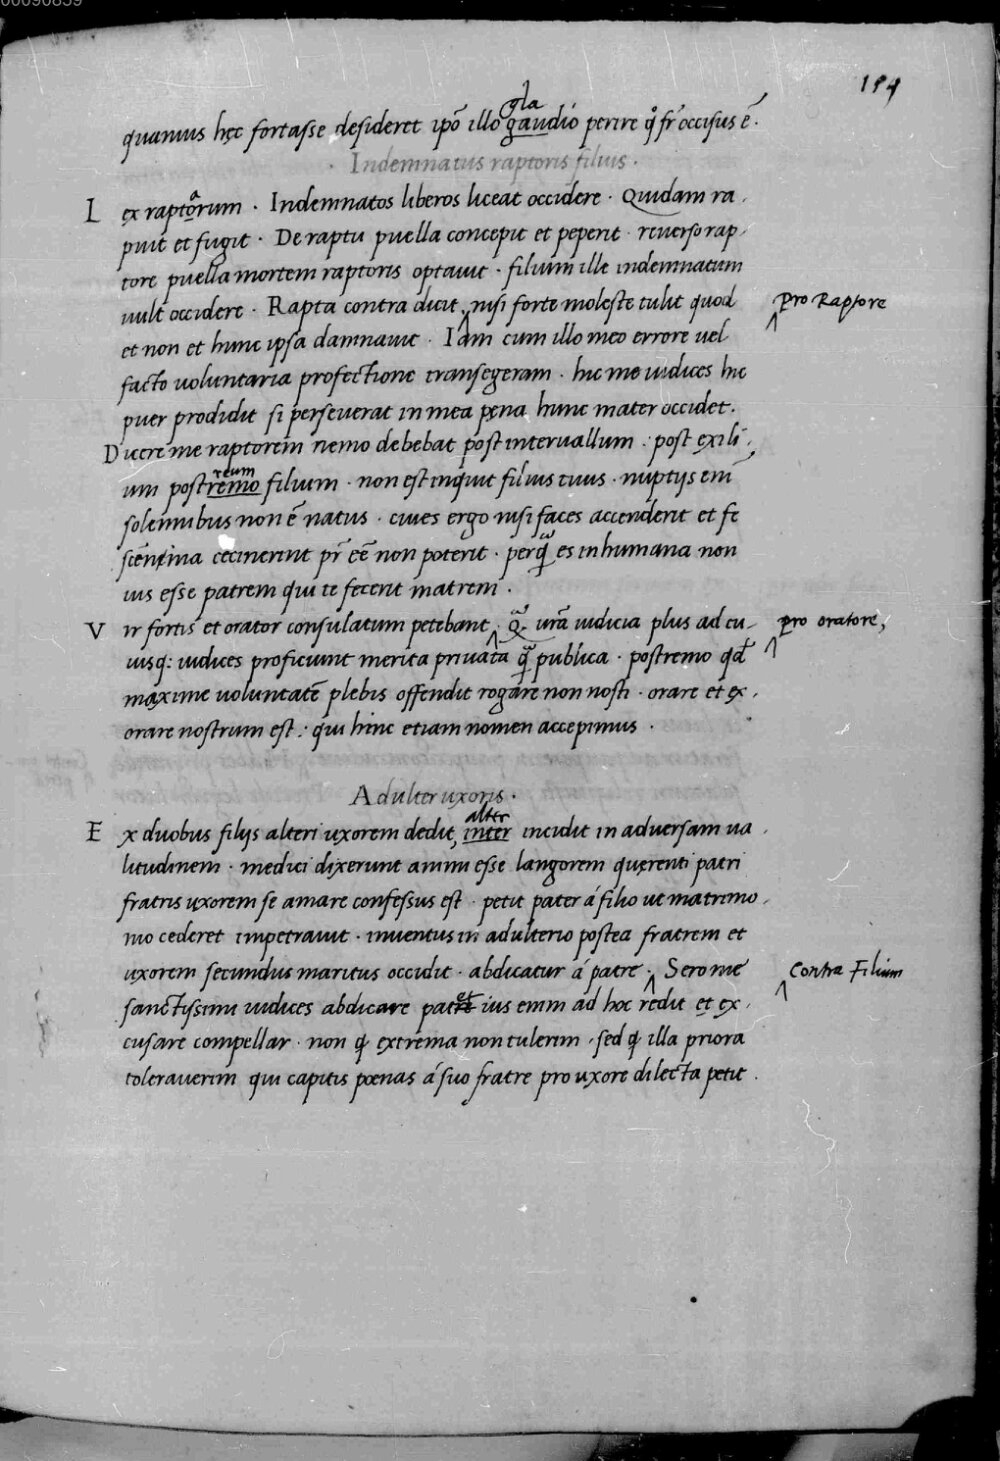 00090859
194
gla
quamuis hęc fortasse desideret ip̄o illo gaudio perire q̊ fr̄ occisus ē.
· Indemnatus raptoris filius ·
a
L ex raptorum · Indemnatos liberos liceat occidere · Quidam ra
puit et fugit · De raptu puella concepit et peperit · reverso rap
tore puella mortem raptoris optauit · filium ille indemnatum
uult occidere · Rapta contra dicit, nisi forte moleste tulit quod
pro Raptore
et non et hunc ipsa damnauit · Iam cum illo meo errore uel
facto uoluntaria profectione transegeram · hic me iudices hic
puer prodidit si perseuerat in mea pęna hunc mater occidet.
D ucere me raptorem nemo debebat post interuallum : post exili
reum
um post remo filium · non est inquit filius tuus · nuptijs em̄
solemnibus non ē natus · ciues ergo nisi faces accenderit et fe
scēnina cecinerint pr̄ eē non poterit · perq̄ es inhumana non
uis esse patrem qui te fecerit matrem ·
V ir fortis et orator consulatum petebant · Q̄ ur̄a iudicia plus ad cu
pro oratore,
iusq: iudices proficiunt merita priuata q̄ publica · postremo qd̄
maxime uoluntatē plebis offendit rogare non nosti · orare et ex
orare nostrum est : qui hinc etiam nomen accepimus ·
Adulter uxoris ·
alter
E x duobus filijs alteri uxorem dedit, inter incidit in aduersam ua
litudinem · medici dixerunt animi esse langorem quęrenti patri
fratris uxorem se amare confessus est · petit pater á filio ut matrimo
nio cederet impetrauit · inuentus in adulterio postea fratrem et
uxorem secundus maritus occidit · abdicatur á patre · Sero me
Contra Filium
et
sanctissimi iudices abdicare patre ius enim ad hoc redit et ex
cusare compellar · non q̇ extrema non tulerim · sed q̇ illa priora
tolerauerim qui capitis pœnas á suo fratre pro uxore dilecta petit ·